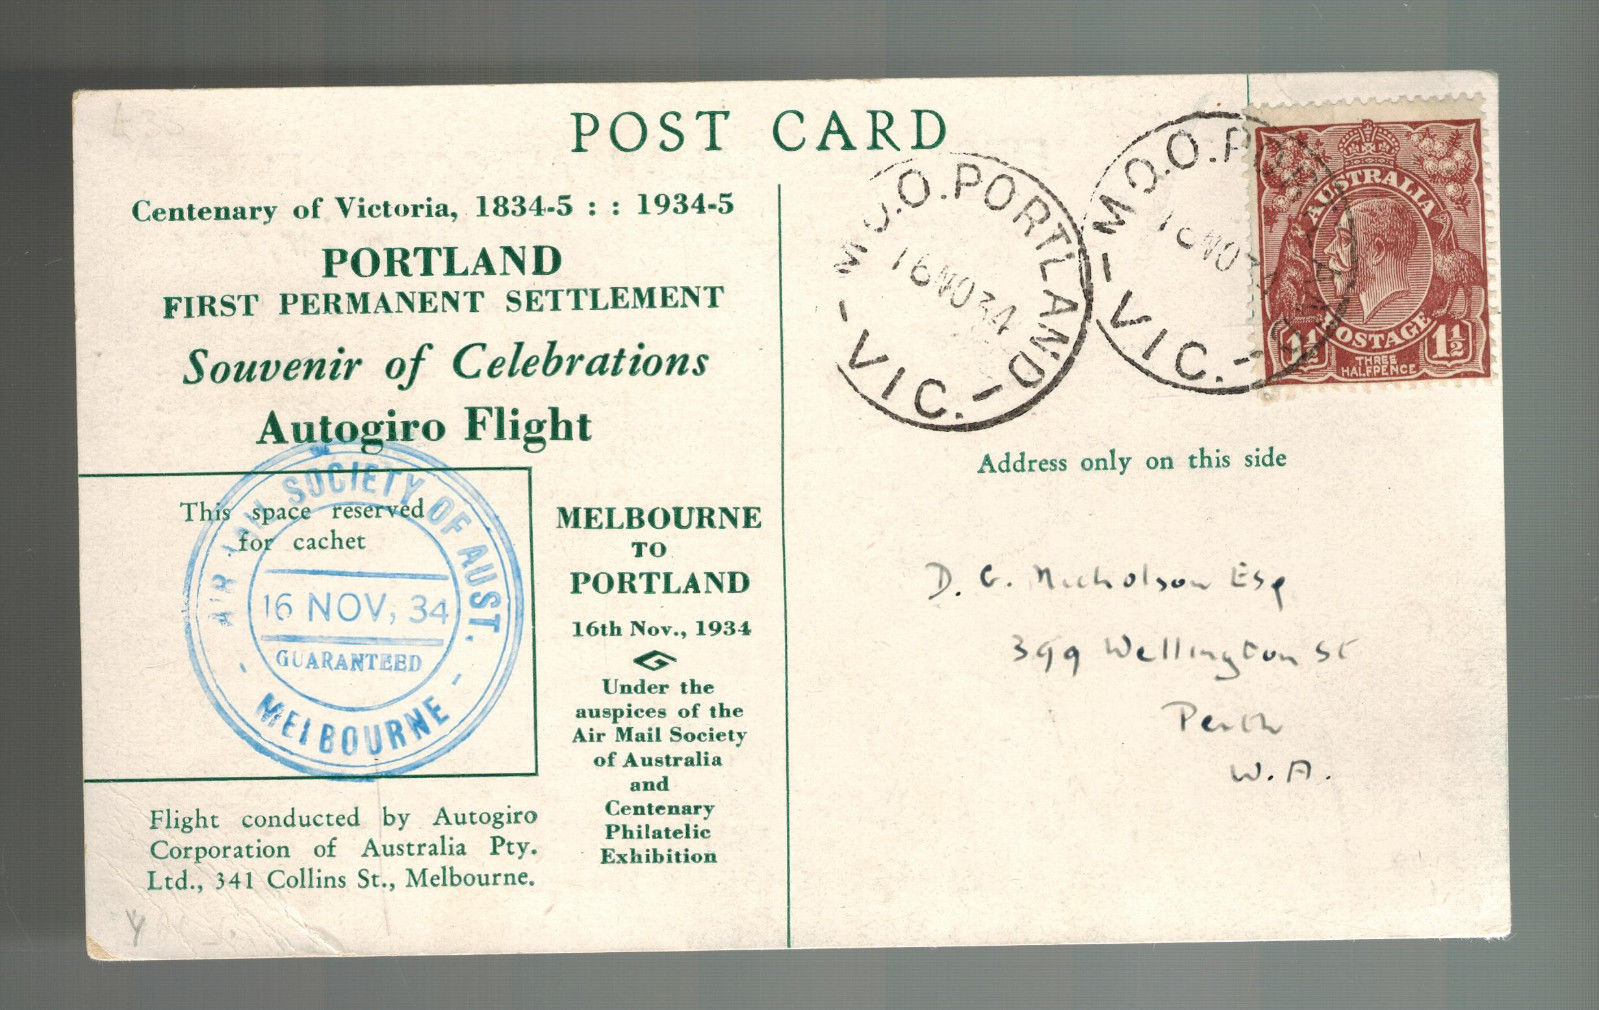 POST CARD
Centenary of Victoria, 1834-5 : : 1934-5
PORTLAND
FIRST PERMANENT SETTLEMENT
Souvenir of Celebrations
Autogiro Flight
This space reserved
for cachet
AIR MAIL SOCIETY OF AUST.
16 NOV, 34
GUARANTEED
- MELBOURNE -
MELBOURNE
TO
PORTLAND
16th Nov., 1934
G
Under the
auspices of the
Air Mail Society
of Australia
and
Centenary
Philatelic
Exhibition
Flight conducted by Autogiro
Corporation of Australia Pty.
Ltd., 341 Collins St., Melbourne.
Y
M.O.O. PORTLAND
16 NO 34
- VIC. -
M.O.O. PORTLAND
16 NO 34
- VIC. -
AUSTRALIA
POSTAGE
1½ 1½
THREE
HALFPENCE
Address only on this side
D. G. Nicholson Esq
399 Wellington St
Perth
W.A.